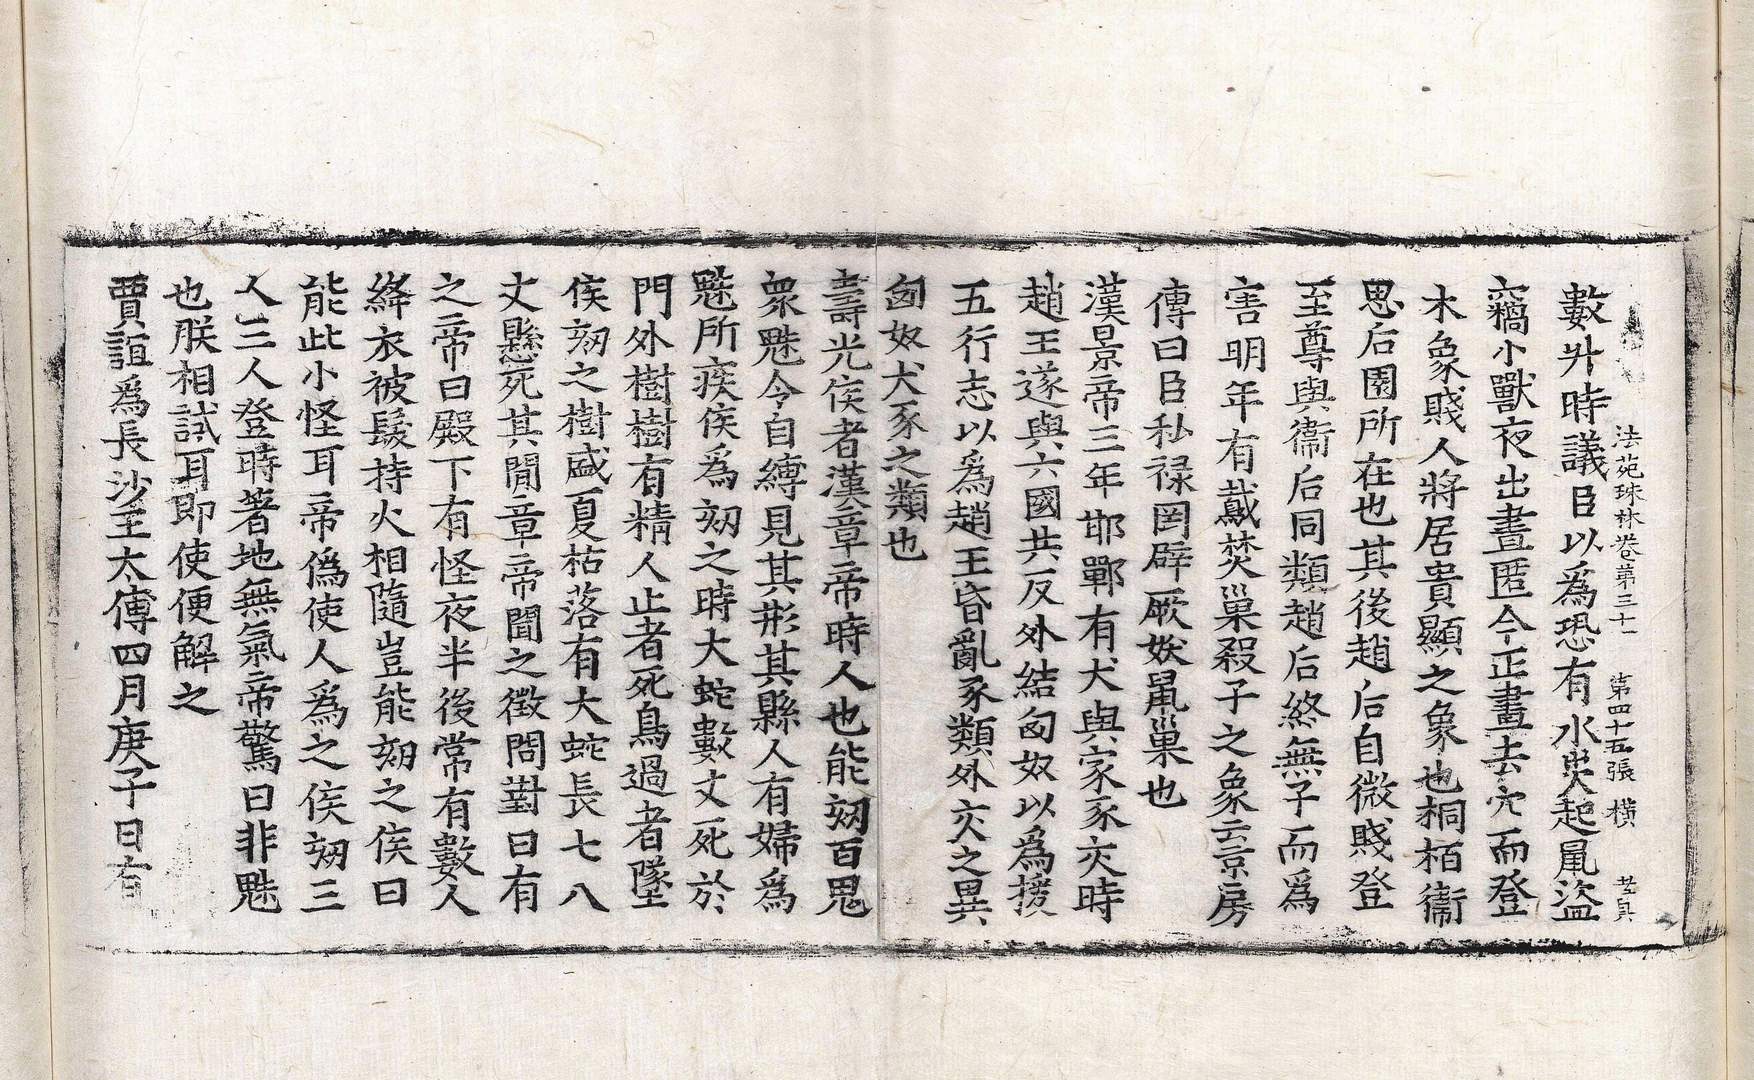 法苑珠林卷第三十一 第四十五張 横
數廾時議臣以爲恐有水灾起鼠盜
竊小獸夜出晝匿今正晝去穴而登
木象賤人將居貴顯之象也桐栢衞
思后園所在也其後趙后自微賤登
至尊與衞后同類趙后終無子而爲
害明年有鳶焚巢殺子之象云京房
傳曰臣私禄罔辟厥妖鼠巢也
漢景帝三年邯鄲有犬與家豕交時
趙王遂與六國共反外結匈奴以爲援
五行志以爲趙王昏亂豕類外交之異
匈奴犬豕之類也
壽光侯者漢章帝時人也能劾百鬼
衆魅令自縛見其形其縣人有婦爲
魅所疾侯爲劾之時大蛇數丈死於
門外樹樹有精人止者死鳥過者墜
侯劾之樹盛夏枯落有大蛇長七八
丈懸死其間章帝聞之徵問對曰有
之帝曰殿下有怪夜半後常有數人
絳衣被髮持火相隨豈能劾之侯曰
能此小怪耳帝僞使人爲之侯劾三
人三人登時著地無氣帝驚曰非魅
也朕相試耳即使便解之
賈誼爲長沙王太傅四月庚子日有